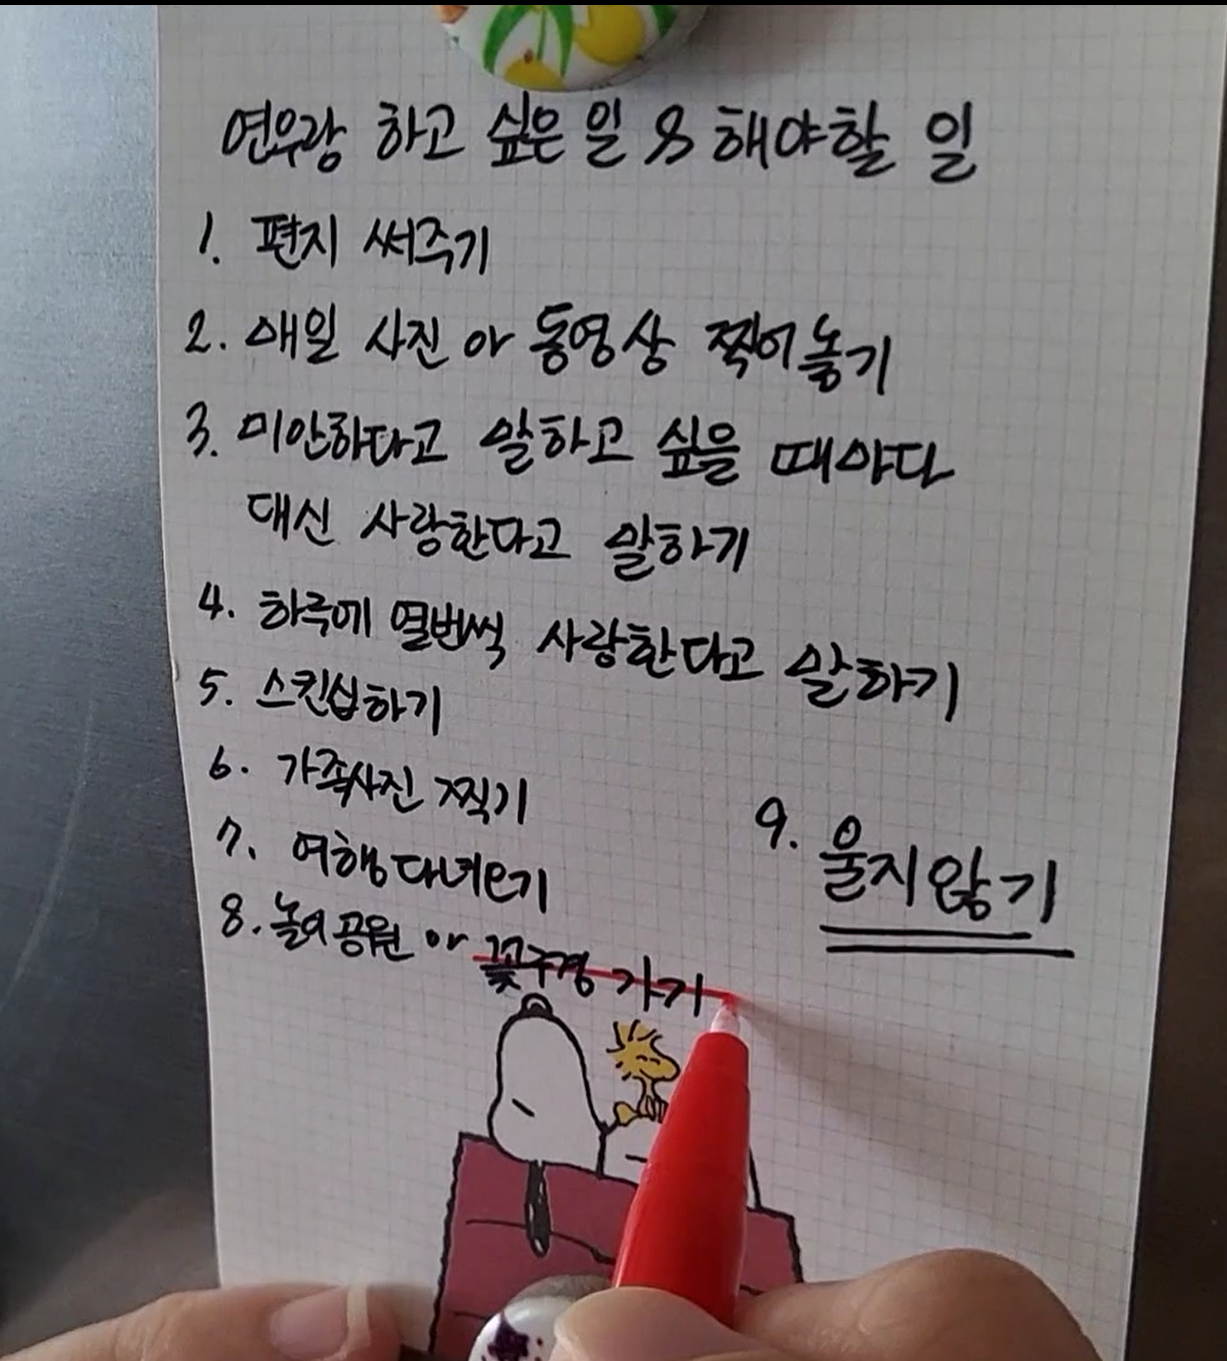 연우랑 하고 싶은 일 & 해야할 일
1. 편지 써주기
2. 매일 사진 마 동영상 찍어놓기
3. 미안하다고 말하고 싶을 때마다
대신 사랑한다고 말하기
4. 하루에 열번씩 사랑한다고 말하기
5. 스킨십하기
6. 가족사진 찍기
7. 여행다녀오기
8. 놀이공원 마 꽃구경 가기
9. 울지않기